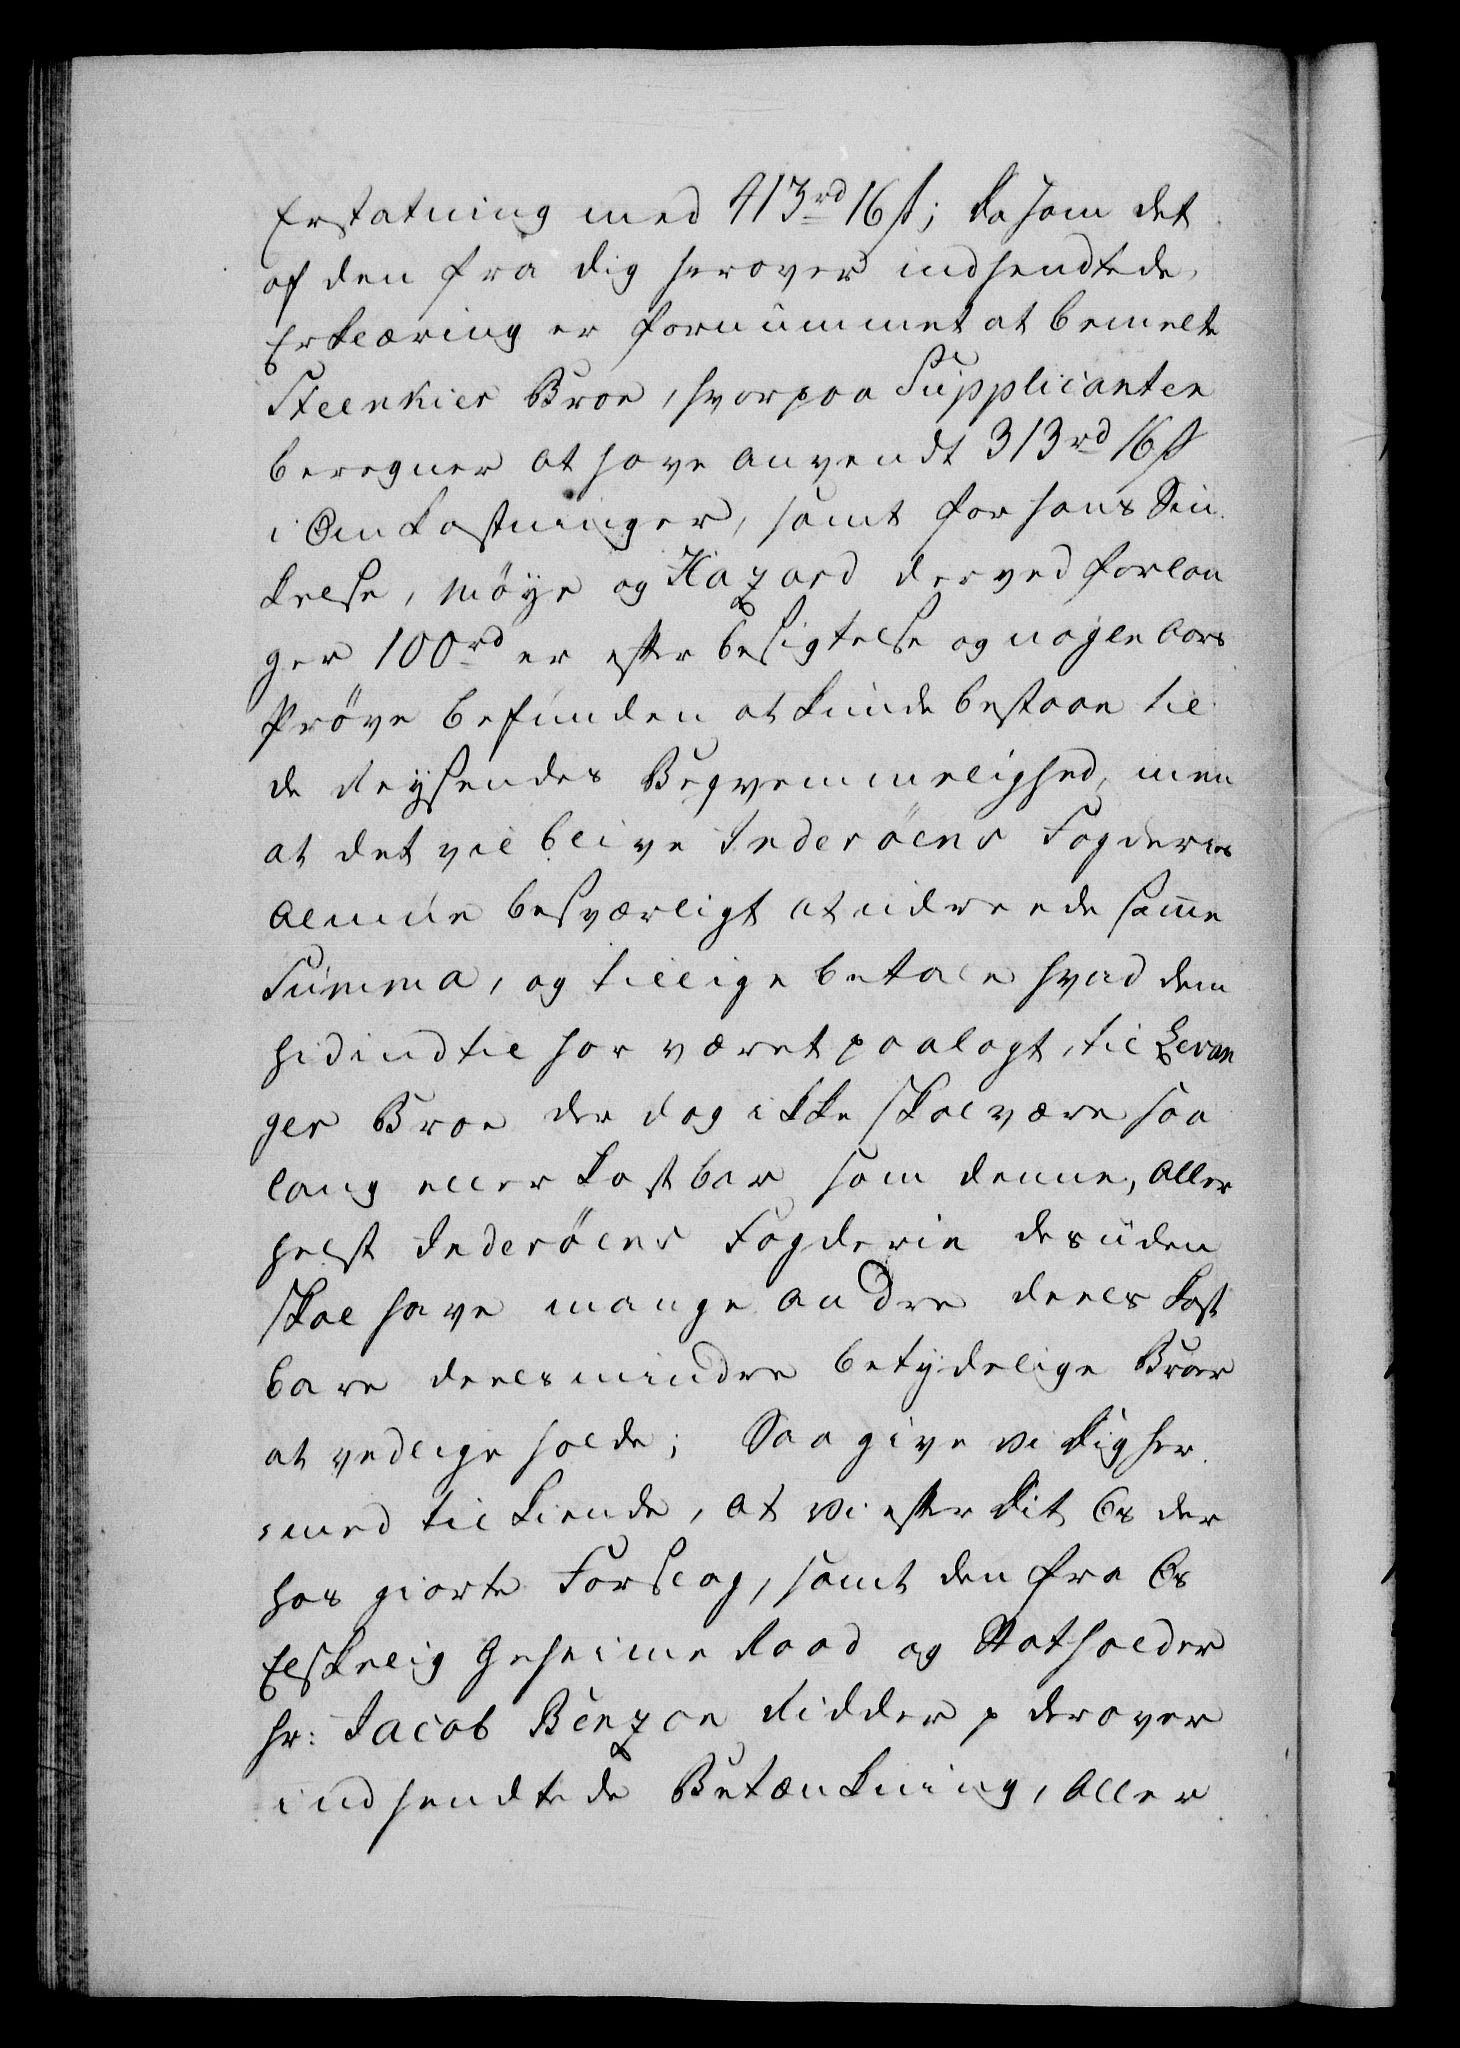 Erstatning med 413 rd 16 ß; Da som det
af den fra dig herover indsendte
Erklæring er fornummet at bemelte
Steenkier Broe, hvorpaa Supplicanten
beregner at have anvendt 313 rd 16 ß
i Omkostninger, samt for hans Sin
kelse, Møye og Hazard derved forlan
ger 100 rd er efter besigtelse og nogle Aars
Prøve befunden at kunde bestaae til
de Reysendes Beqvemmelighed, men
at det vil blive Inderøens Fogderies
Almue besværligt at udreede samme
Summa, og tillige betale hvad dem
hidindtil har været paalagt, til Levan
ger Broe der dog ikke skal være saa
lang eller kostbar som denne, Aller
helst Inderøens Fogderie desuden
skal have mange andre deels kost
bare deels mindre betydelige Broer
at vedlige holde; Saa give vi dig her
med til kiende, at vi efter dit Os der
hos giorte Forslag, samt den fra Os
Elskelig Geheime Raad og Statholder
Hr: Jacob Benzon Ridder p derover
indsendte Betænkning, Aller